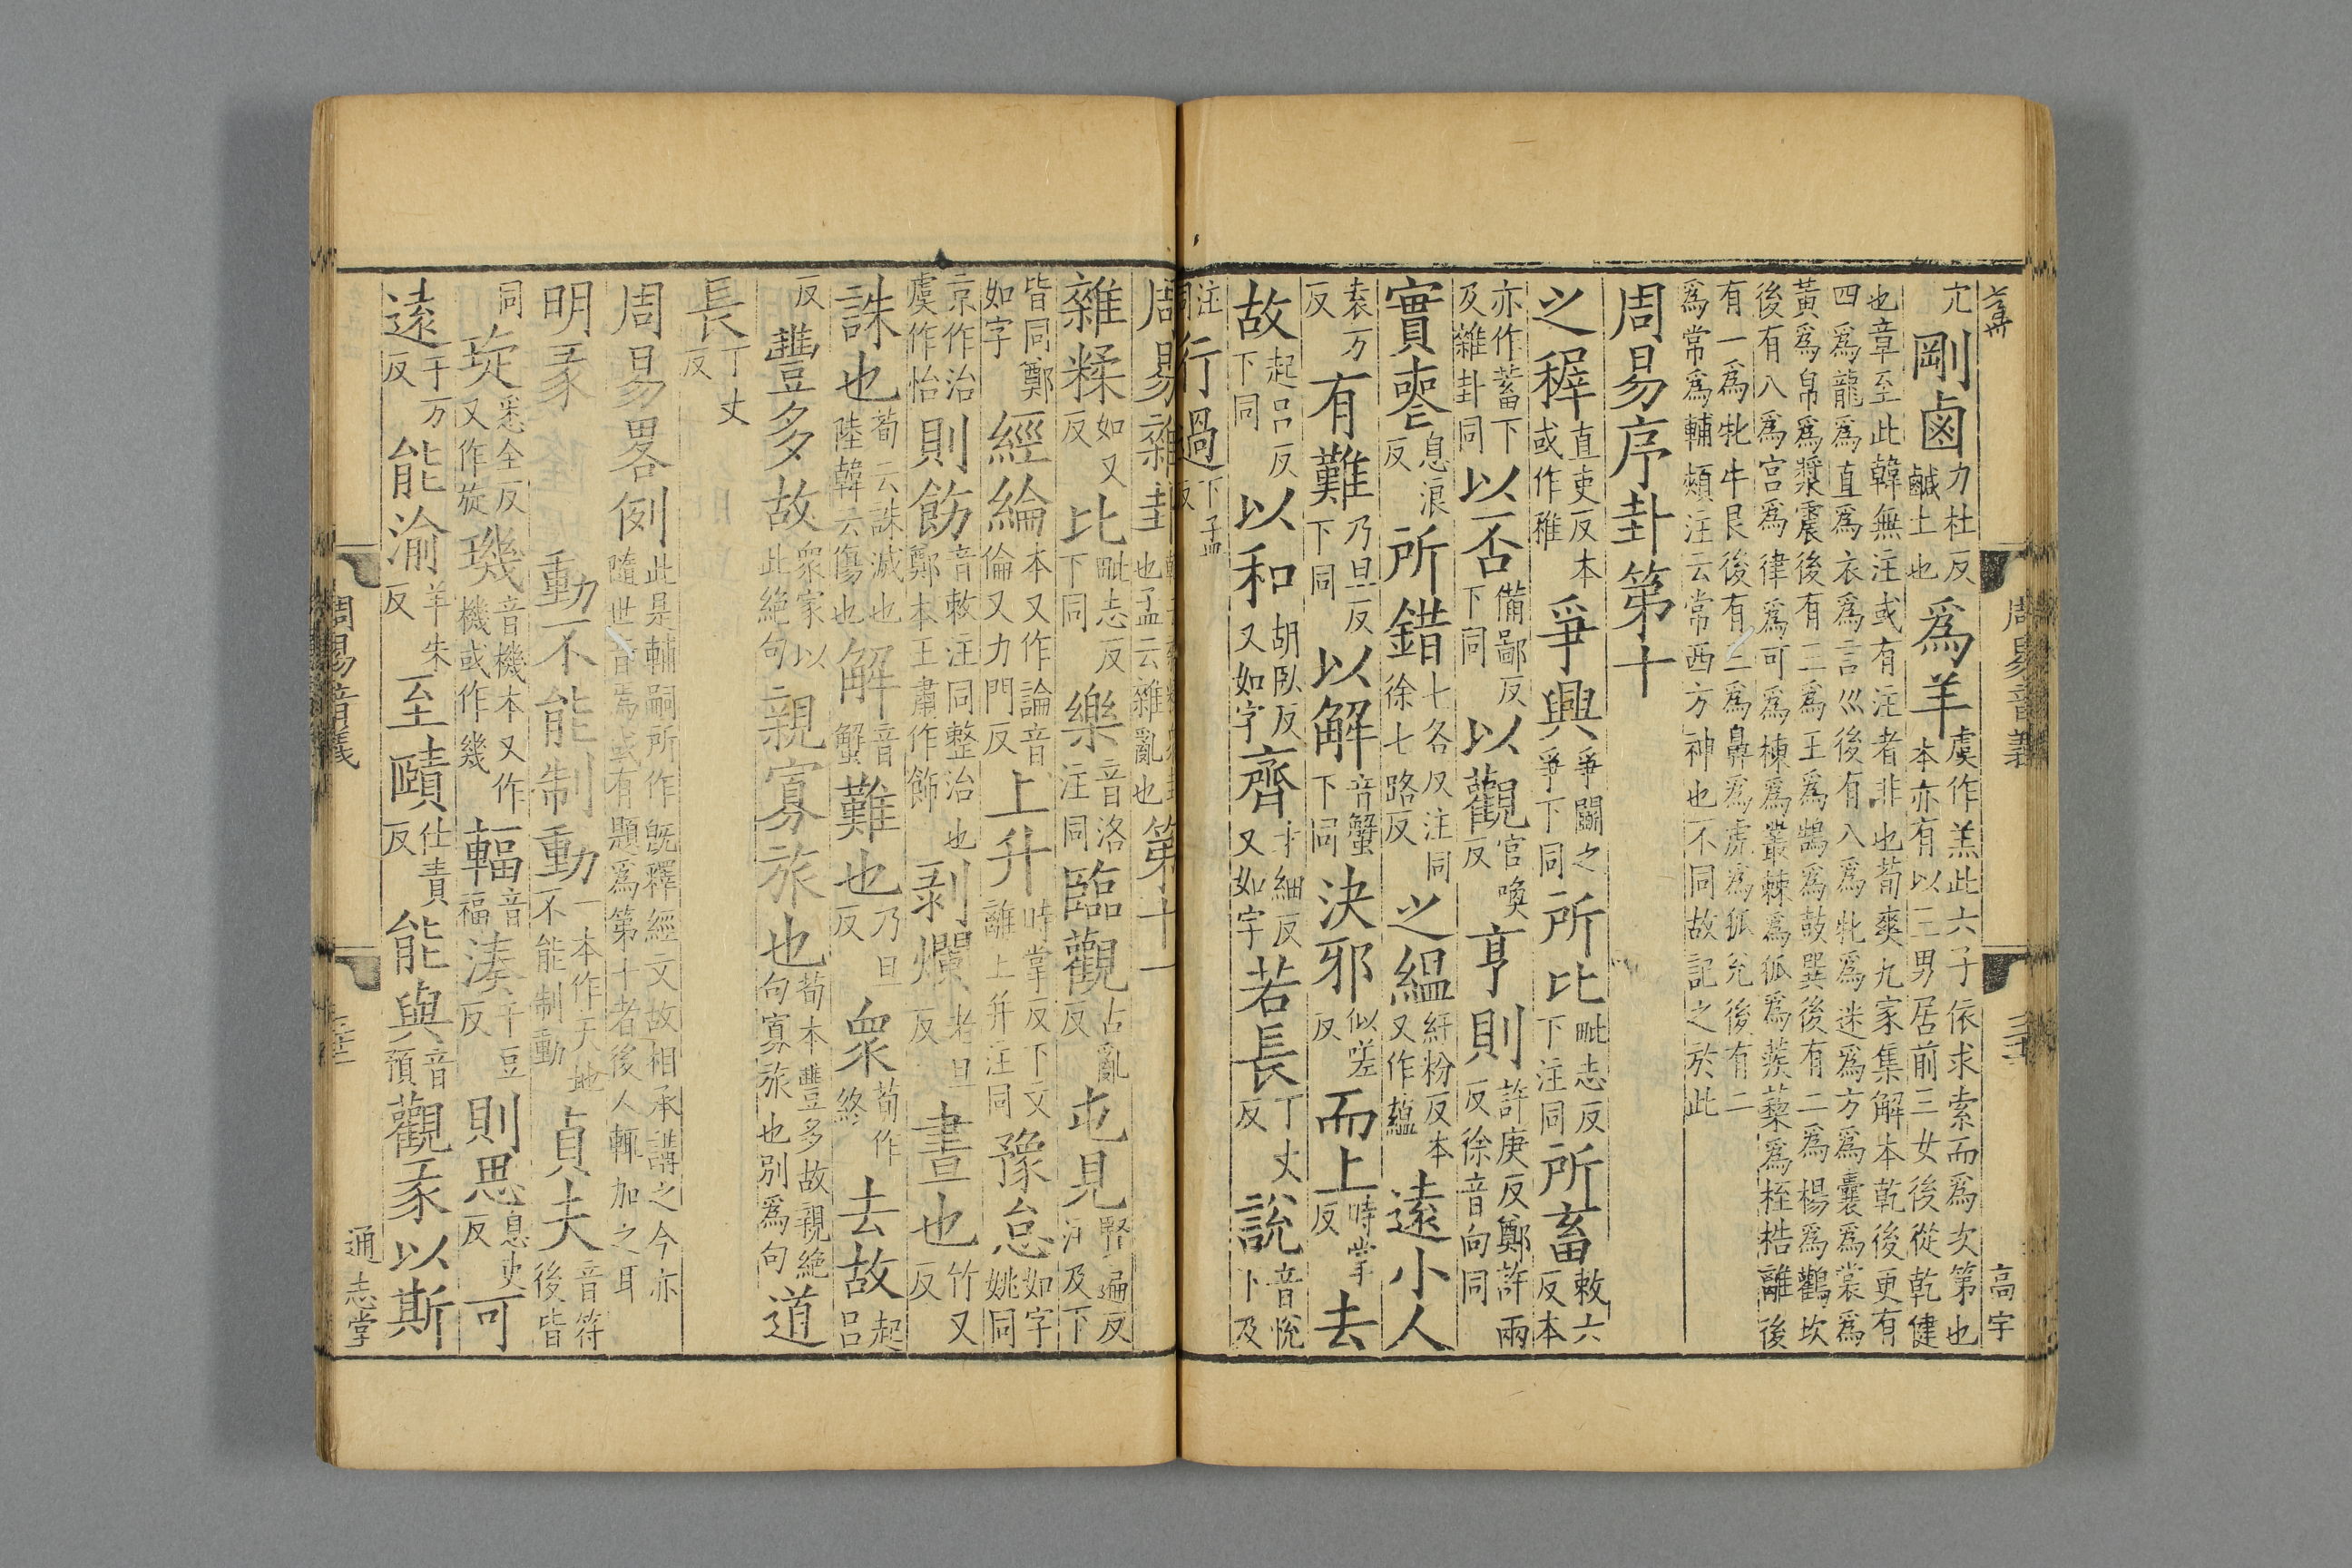 亢剛鹵力杜反鹹土也爲羊虞作羔此六子依求索而爲次第也本亦有以三男居前三女後從乾健
也章至此韓無注或有注者非也荀爽九家集解本乾後更有
四爲龍爲直爲衣爲言巛後有八爲牝爲迷爲方爲囊爲裳爲
黃爲帛爲漿震後有三爲王爲鵠爲鼓巽後有二爲楊爲鸛坎
後有八爲宮爲律爲可爲棟爲叢棘爲狐爲蒺蔾爲桎梏離後
有一爲牝牛艮後有三爲鼻爲虎爲狐兌後有二
爲常爲輔頰注云常西方神也不同故記之於此
周易序卦第十
之稺直吏反本或作稚爭興爭鬬之爭下同所比毗志反下注同所畜敕六反本
亦作蓄下及雜卦同以否備鄙反下同以觀官喚反亨則許庚反鄭許兩反徐音向同
實喪息浪反所錯七各反注同徐七路反之緼紆粉反本又作蘊遠小人
袁万反有難乃旦反下同以解音蟹下同決邪似嗟反而上時掌反去
故起呂反下同以和胡臥反又如字齊才細反又如字若長丁丈反說音悅卜及
注同行過下孟反
周易雜卦第十一
雜糅如又反比毗志反下同樂音洛注同臨觀古亂反也見賢遍反注及下
皆同鄭如字經綸本又作論音倫又力門反上升時掌反下文離上幷注同豫怠如字姚同
京作治虞作怡則飭音敕注同整治也鄭本王肅作飾剥爛老旦反晝也竹又反
誅也荀云誅滅也陸韓云傷也解音蟹難也乃旦反衆荀作終去故起呂
反豐多故衆家以此絶句親寡旅也荀本豐多故親絶句寡旅也別爲句道
長丁丈反
周易畧例此是輔嗣所作旣釋經文故相承講之今亦隨世音焉或有題爲第十者後人輒加之耳
明彖動不能制動一本作天地不能制動貞夫音符後皆
同琁悉全反又作旋璣音機本又作機或作幾輻音福湊千豆反則思息吏反可
遠于万反能渝羊朱反至賾仕責反能與音預觀彖以斯
周易音義
高宇
周易音義
通志堂